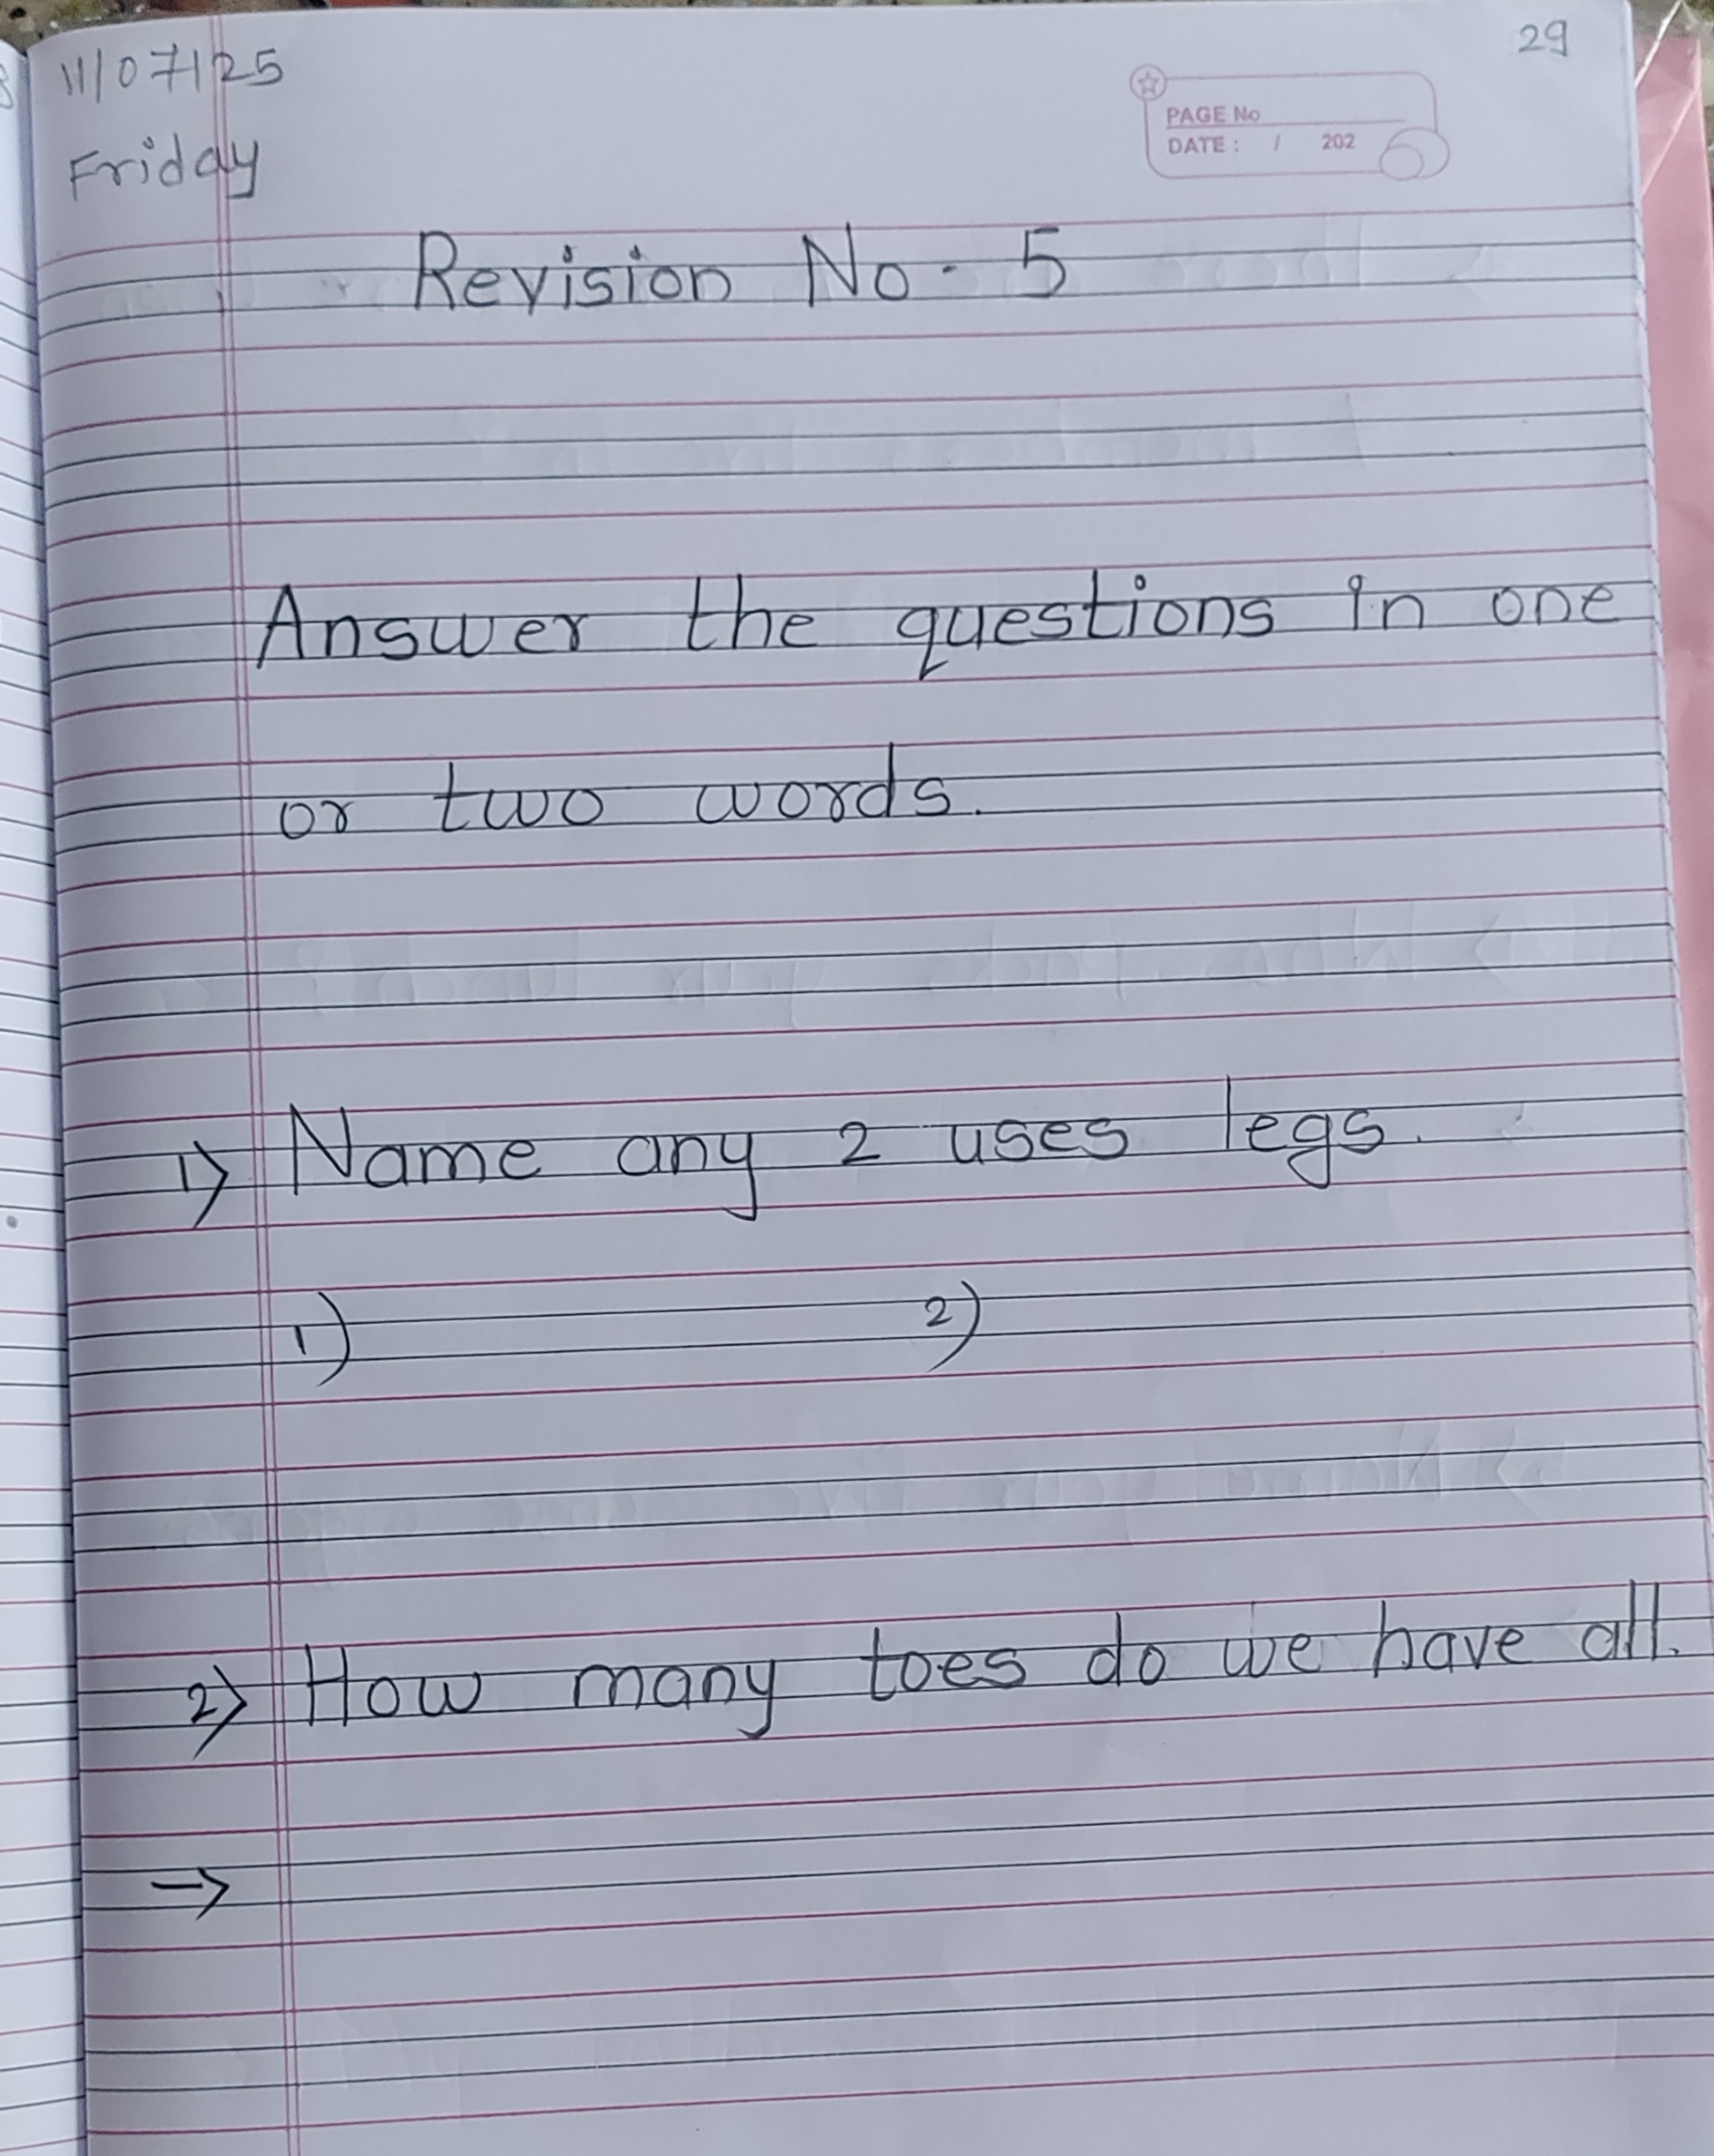 29
11/07/25
PAGE No
DATE : / 202
Friday
Revision No. 5
Answer the questions in one
or two words.
1) Name any 2 uses legs.
1) 2)
2) How many toes do we have all.
→